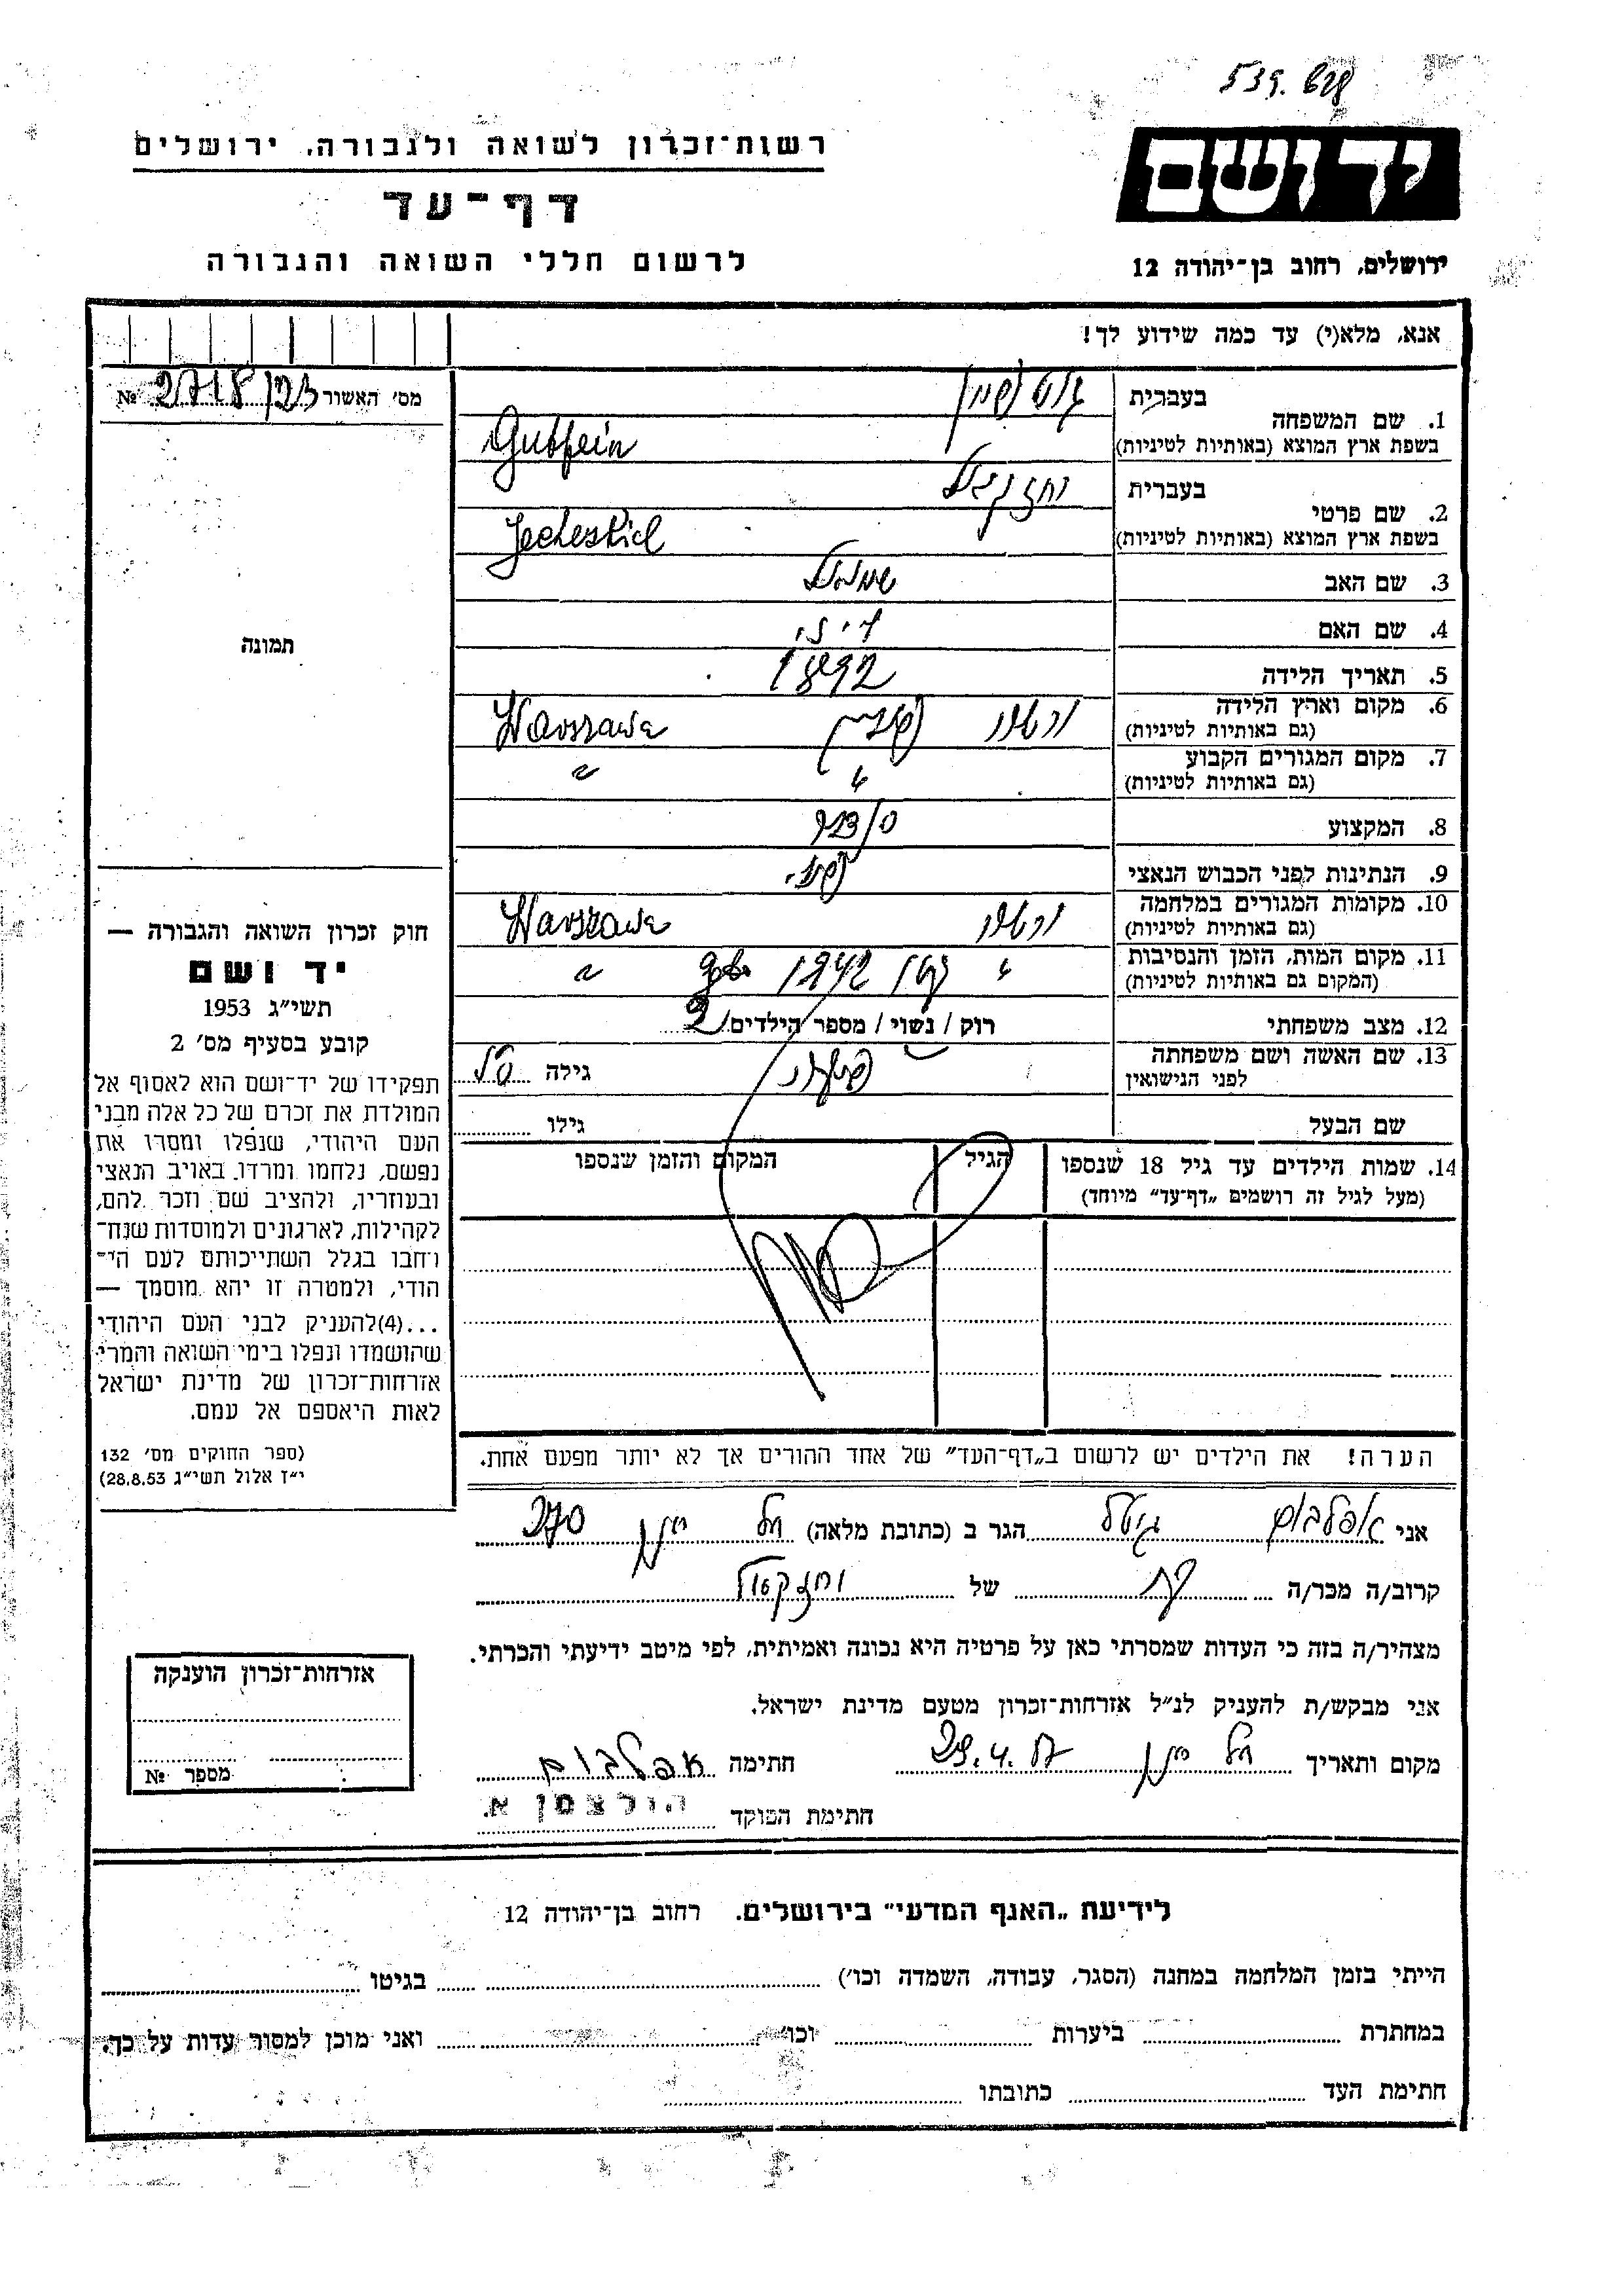 539.628
רשות־זכרון לשואה ולגבורה, ירושלים
יד ושם
דף־עד
לרשום חללי השואה והגבורה
ירושלים, רחוב בן־יהודה 12
אנא, מלא(י) עד כמה שידוע לך!
מס׳ האשור 2718/23 №
1. שם המשפחה
בעברית
בשפת ארץ המוצא (באותיות לטיניות) Gutfein
2. שם פרטי
בעברית יחזקאל
בשפת ארץ המוצא (באותיות לטיניות) Jecheskiel
3. שם האב שמואל
4. שם האם
5. תאריך הלידה 1892
6. מקום וארץ הלידה (גם באותיות לטיניות) ורשה פולין Warszawa
7. מקום המגורים הקבוע (גם באותיות לטיניות) " "
8. המקצוע
9. הנתינות לפני הכבוש הנאצי
10. מקומות המגורים במלחמה (גם באותיות לטיניות) ורשה Warszawa
11. מקום המות, הזמן והנסיבות (המקום גם באותיות לטיניות) " גטו 1942 "
12. מצב משפחתי רוק / נשוי / מספר הילדים 2
13. שם האשה ושם משפחתה לפני הנישואין גילה
שם הבעל גילו
14. שמות הילדים עד גיל 18 שנספו
(מעל לגיל זה רושמים „דף־עד״ מיוחד)
הגיל
המקום והזמן שנספו
תמונה
חוק זכרון השואה והגבורה —
יד ושם
תשי״ג 1953
קובע בסעיף מס׳ 2
תפקידו של יד־ושם הוא לאסוף אל
המולדת את זכרם של כל אלה מבני
העם היהודי, שנפלו ומסרו את
נפשם, נלחמו ומרדו באויב הנאצי
ובעוזריו, ולהציב שם וזכר להם,
לקהילות, לארגונים ולמוסדות שנח־
רחבו בגלל השתייכותם לעם הי־
הודי, ולמטרה זו יהא מוסמך —
...(4)להעניק לבני העם היהודי
שהושמדו ונפלו בימי השואה והמרי
אזרחות־זכרון של מדינת ישראל
לאות היאספם אל עמם.
(ספר החוקים מס׳ 132
י״ז אלול תשי״ג 28.8.53)
הערה! את הילדים יש לרשום ב„דף־העד״ של אחד ההורים אך לא יותר מפעם אחת.
אני אפלבוים גיטל הגר ב (כתובת מלאה) תל 270
קרוב/ה מכר/ה של יחזקאל
מצהיר/ה בזה כי העדות שמסרתי כאן על פרטיה היא נכונה ואמיתית, לפי מיטב ידיעתי והכרתי.
אני מבקש/ת להעניק לנ״ל אזרחות־זכרון מטעם מדינת ישראל.
מקום ותאריך תל 29.4.57 חתימה אפלבוים
חתימת הפוקד הולצמן א.
אזרחות־זכרון הוענקה
מספר №
לידיעת „האגף המדעי״ בירושלים. רחוב בן־יהודה 12
הייתי בזמן המלחמה במחנה (הסגר, עבודה, השמדה וכו׳) בגיטו
במחתרת ביערות וכו׳ ואני מוכן למסור עדות על כך.
חתימת העד כתובתו